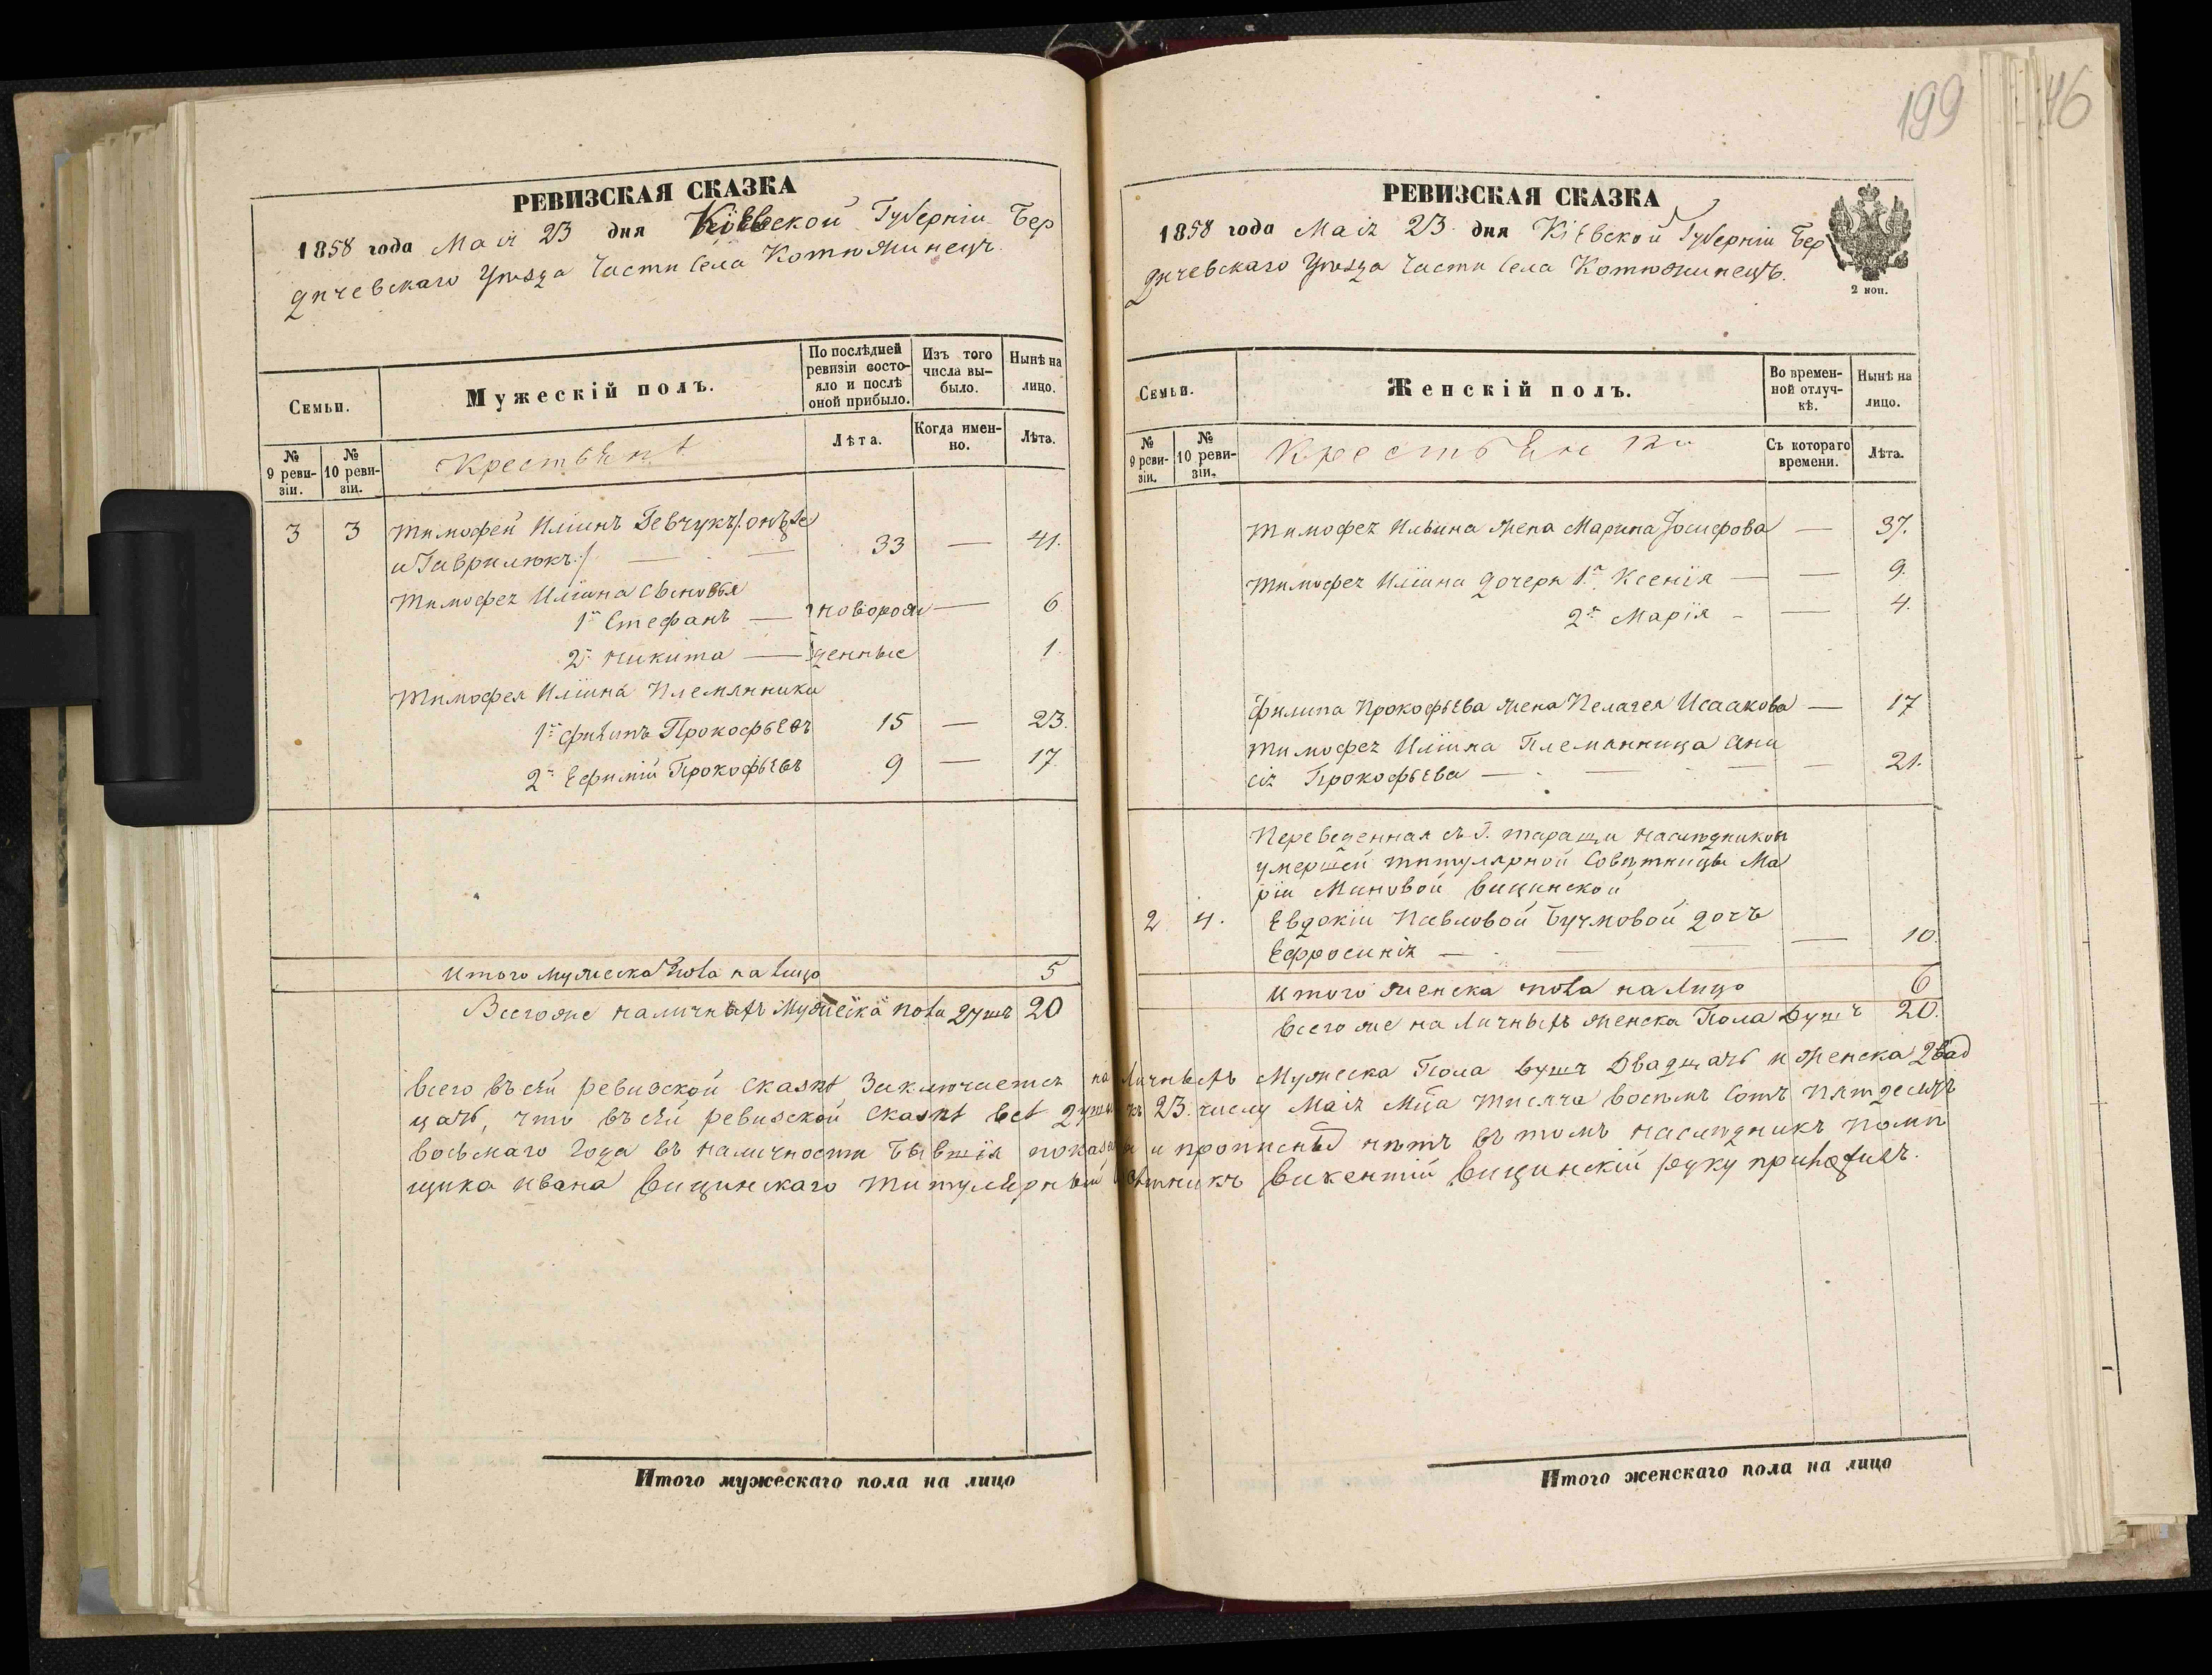 199
46
РЕВИЗСКАЯ СКАЗКА
1858 года Маія 23 дня Кіевской Губерніи Бер
дичевскаго Уѣзда Части Села Котюжинецъ.
Семьи.
Мужескій полъ.
По послѣдней ревизіи состояло и послѣ оной прибыло.
Изъ того числа выбыло.
Нынѣ на лицо.
№ 9 ревизіи.
№ 10 ревизіи.
Крестьянѣ
Лѣта.
Когда именно.
Лѣта.
3 3 Тимофей Иліинъ Гевчукъ /: онъ же
и Гаврилюкъ :/ — 33 — 41.
Тимофея Иліина Сыновья
1й Стефанъ — новорож — 6
2й Никита — денные 1
Тимофея Иліина Племянники
1й Филипъ Прокофьевъ 15 — 23.
2й Ефимій Прокофьевъ 9 — 17
Итого мужеска пола на лицо 5
Всего же наличныхъ Мужеска пола душъ 20
РЕВИЗСКАЯ СКАЗКА
1858 года Маія 23 дня Кіевской Губерніи Бер
дичевскаго Уѣзда Части Села Котюжинецъ.
2 коп.
Семьи.
Женскій полъ.
Во временной отлучкѣ.
Нынѣ на лицо.
№ 9 ревизіи.
№ 10 ревизіи.
Крестьянки
Съ котораго времени.
Лѣта.
Тимофея Ильина жена Марина Іосифова — 37.
Тимофея Иліина дочери 1я Ксенія — — 9.
2я Марія — — 4.
Филипа Прокофьева жена Пелагея Исаакова — 17
Тимофея Иліина Племянница Ани
сія Прокофьева — — — 21.
Переведенная съ Г. Таращи наслѣдникои
умершей титулярной Совѣтницы Ма
ріи Миновой Вицинской
2 4. Евдокіи Павловой Бучмовой дочь
Ефросинія — — 10.
Итого женска пола на лицо 6
Всего же на личныхъ женска Пола Душъ 20.
Всего въ сей ревизской сказкѣ Заключается на личныхъ Мужеска Пола душъ Двадцать и женска двад
цать, что въ сей ревизской сказкѣ всѣ души къ 23. числу Маія мца тисяча восемь сотъ пятдесятъ
восьмаго Года въ наличности бывшія показаны и прописныхъ нѣтъ въ томъ наслѣдникъ помѣ
щика Ивана Вицинскаго титулярный Совѣтникъ Викентій Вицинскій руку приложилъ.
Итого мужескаго пола на лицо
Итого женскаго пола на лицо